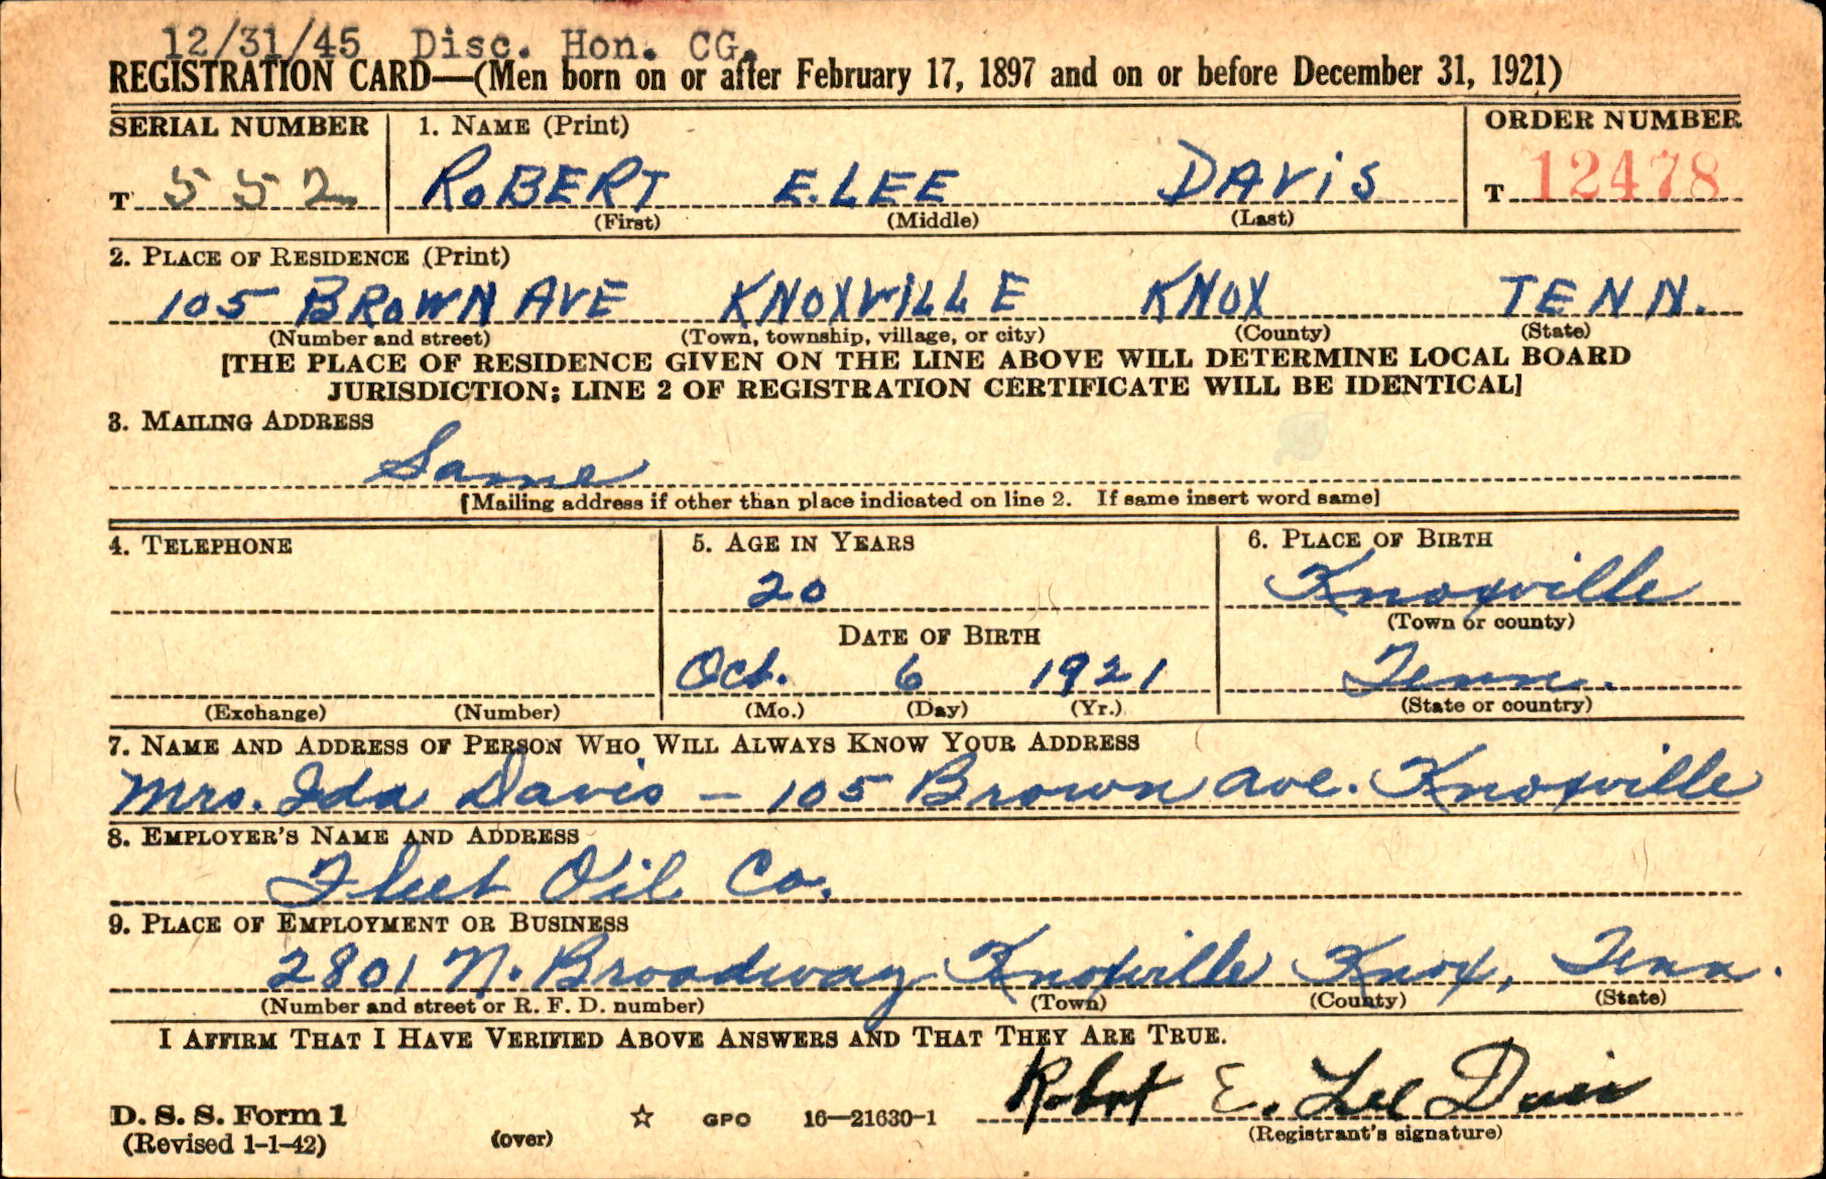 12/31/45 Disc. Hon. CG.
REGISTRATION CARD—(Men born on or after February 17, 1897 and on or before December 31, 1921)
SERIAL NUMBER 1. NAME (Print) ORDER NUMBER
T 552 ROBERT E. LEE DAVIS T 12478
(First) (Middle) (Last)
2. PLACE OF RESIDENCE (Print)
105 BROWN AVE KNOXVILLE KNOX TENN.
(Number and street) (Town, township, village, or city) (County) (State)
[THE PLACE OF RESIDENCE GIVEN ON THE LINE ABOVE WILL DETERMINE LOCAL BOARD
JURISDICTION; LINE 2 OF REGISTRATION CERTIFICATE WILL BE IDENTICAL]
3. MAILING ADDRESS
Same
[Mailing address if other than place indicated on line 2. If same insert word same]
4. TELEPHONE 5. AGE IN YEARS 6. PLACE OF BIRTH
20 Knoxville
(Town or county)
DATE OF BIRTH
Oct. 6 1921 Tenn.
(Exchange) (Number) (Mo.) (Day) (Yr.) (State or country)
7. NAME AND ADDRESS OF PERSON WHO WILL ALWAYS KNOW YOUR ADDRESS
Mrs. Ida Davis – 105 Brown Ave. Knoxville
8. EMPLOYER'S NAME AND ADDRESS
Fleet Oil Co.
9. PLACE OF EMPLOYMENT OR BUSINESS
2801 N. Broadway Knoxville Knox, Tenn.
(Number and street or R. F. D. number) (Town) (County) (State)
I AFFIRM THAT I HAVE VERIFIED ABOVE ANSWERS AND THAT THEY ARE TRUE.
Robert E. Lee Davis
D. S. S. Form 1 GPO 16—21630-1
(Revised 1-1-42) (over) (Registrant's signature)